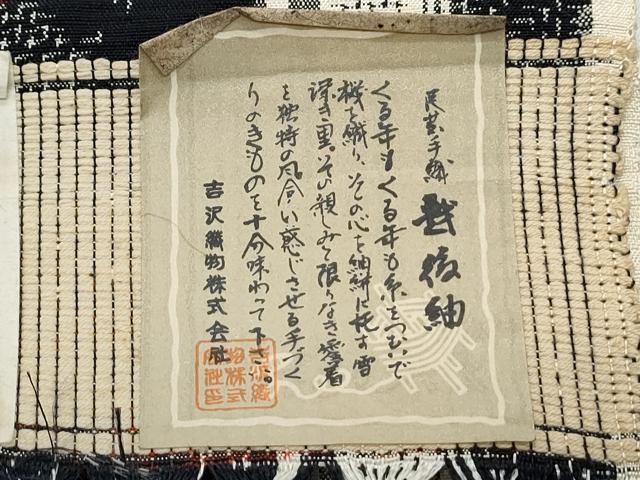 民芸手織
越後紬
くる年もくる年も糸をつむいで
機を織り、その心を紬絣に托す雪
深き里。その親しみと限りなき愛着
と独特の風合い感じさせる手づく
りのきものを十分味わって下さい。
吉沢織物株式会社
吉沢織
物株式
会社印